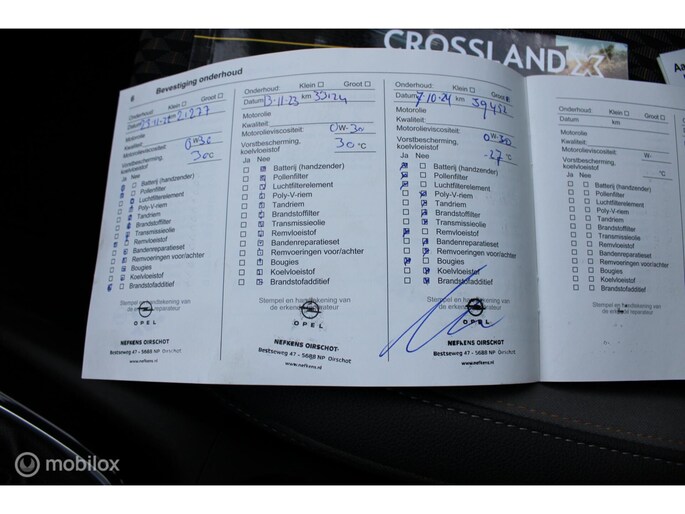 CROSSLAND X
6 Bevestiging onderhoud
Onderhoud: Klein Groot
Datum km 21277
Motorolie
Kwaliteit:
Motorolieviscositeit: 0W30
Vorstbescherming, koelvloeistof 30C
Ja Nee
Batterij (handzender)
Pollenfilter
Luchtfilterelement
Poly-V-riem
Tandriem
Brandstoffilter
Transmissieolie
Remvloeistof
Bandenreparatieset
Remvoeringen voor/achter
Bougies
Koelvloeistof
Brandstofadditief
Stempel en handtekening van
de erkende reparateur
OPEL
NEFKENS OIRSCHOT
Bestseweg 47 - 5688 NP Oirschot
www.nefkens.nl
Onderhoud: Klein Groot
Datum 13-11-23 km
Motorolie
Kwaliteit:
Motorolieviscositeit: 0W-30
Vorstbescherming,
koelvloeistof 30 °C
Ja Nee
Batterij (handzender)
Pollenfilter
Luchtfilterelement
Poly-V-riem
Tandriem
Brandstoffilter
Transmissieolie
Remvloeistof
Bandenreparatieset
Remvoeringen voor/achter
Bougies
Koelvloeistof
Brandstofadditief
Stempel en handtekening van
de erkende reparateur
OPEL
NEFKENS OIRSCHOT
Bestseweg 47 - 5688 NP Oirschot
www.nefkens.nl
Onderhoud: Klein Groot
Datum 7/10-24 km
Motorolie
Kwaliteit:
Motorolieviscositeit: 0W-30
Vorstbescherming,
koelvloeistof -27 °C
Ja Nee
Batterij (handzender)
Pollenfilter
Luchtfilterelement
Poly-V-riem
Tandriem
Brandstoffilter
Transmissieolie
Remvloeistof
Bandenreparatieset
Remvoeringen voor/achter
Bougies
Koelvloeistof
Brandstofadditief
Stempel en handtekening van
de erkende reparateur
OPEL
NEFKENS OIRSCHOT
Bestseweg 47 - 5688 NP Oirschot
www.nefkens.nl
Onderhoud: Klein
Datum km
Motorolie
Kwaliteit:
Motorolieviscositeit: W-
Vorstbescherming,
koelvloeistof °C
Ja Nee
Batterij (handzender)
Pollenfilter
Luchtfilterelement
Poly-V-riem
Tandriem
Brandstoffilter
Transmissieolie
Remvloeistof
Bandenreparatieset
Remvoeringen voor/achter
Bougies
Koelvloeistof
Brandstofadditief
mobilox